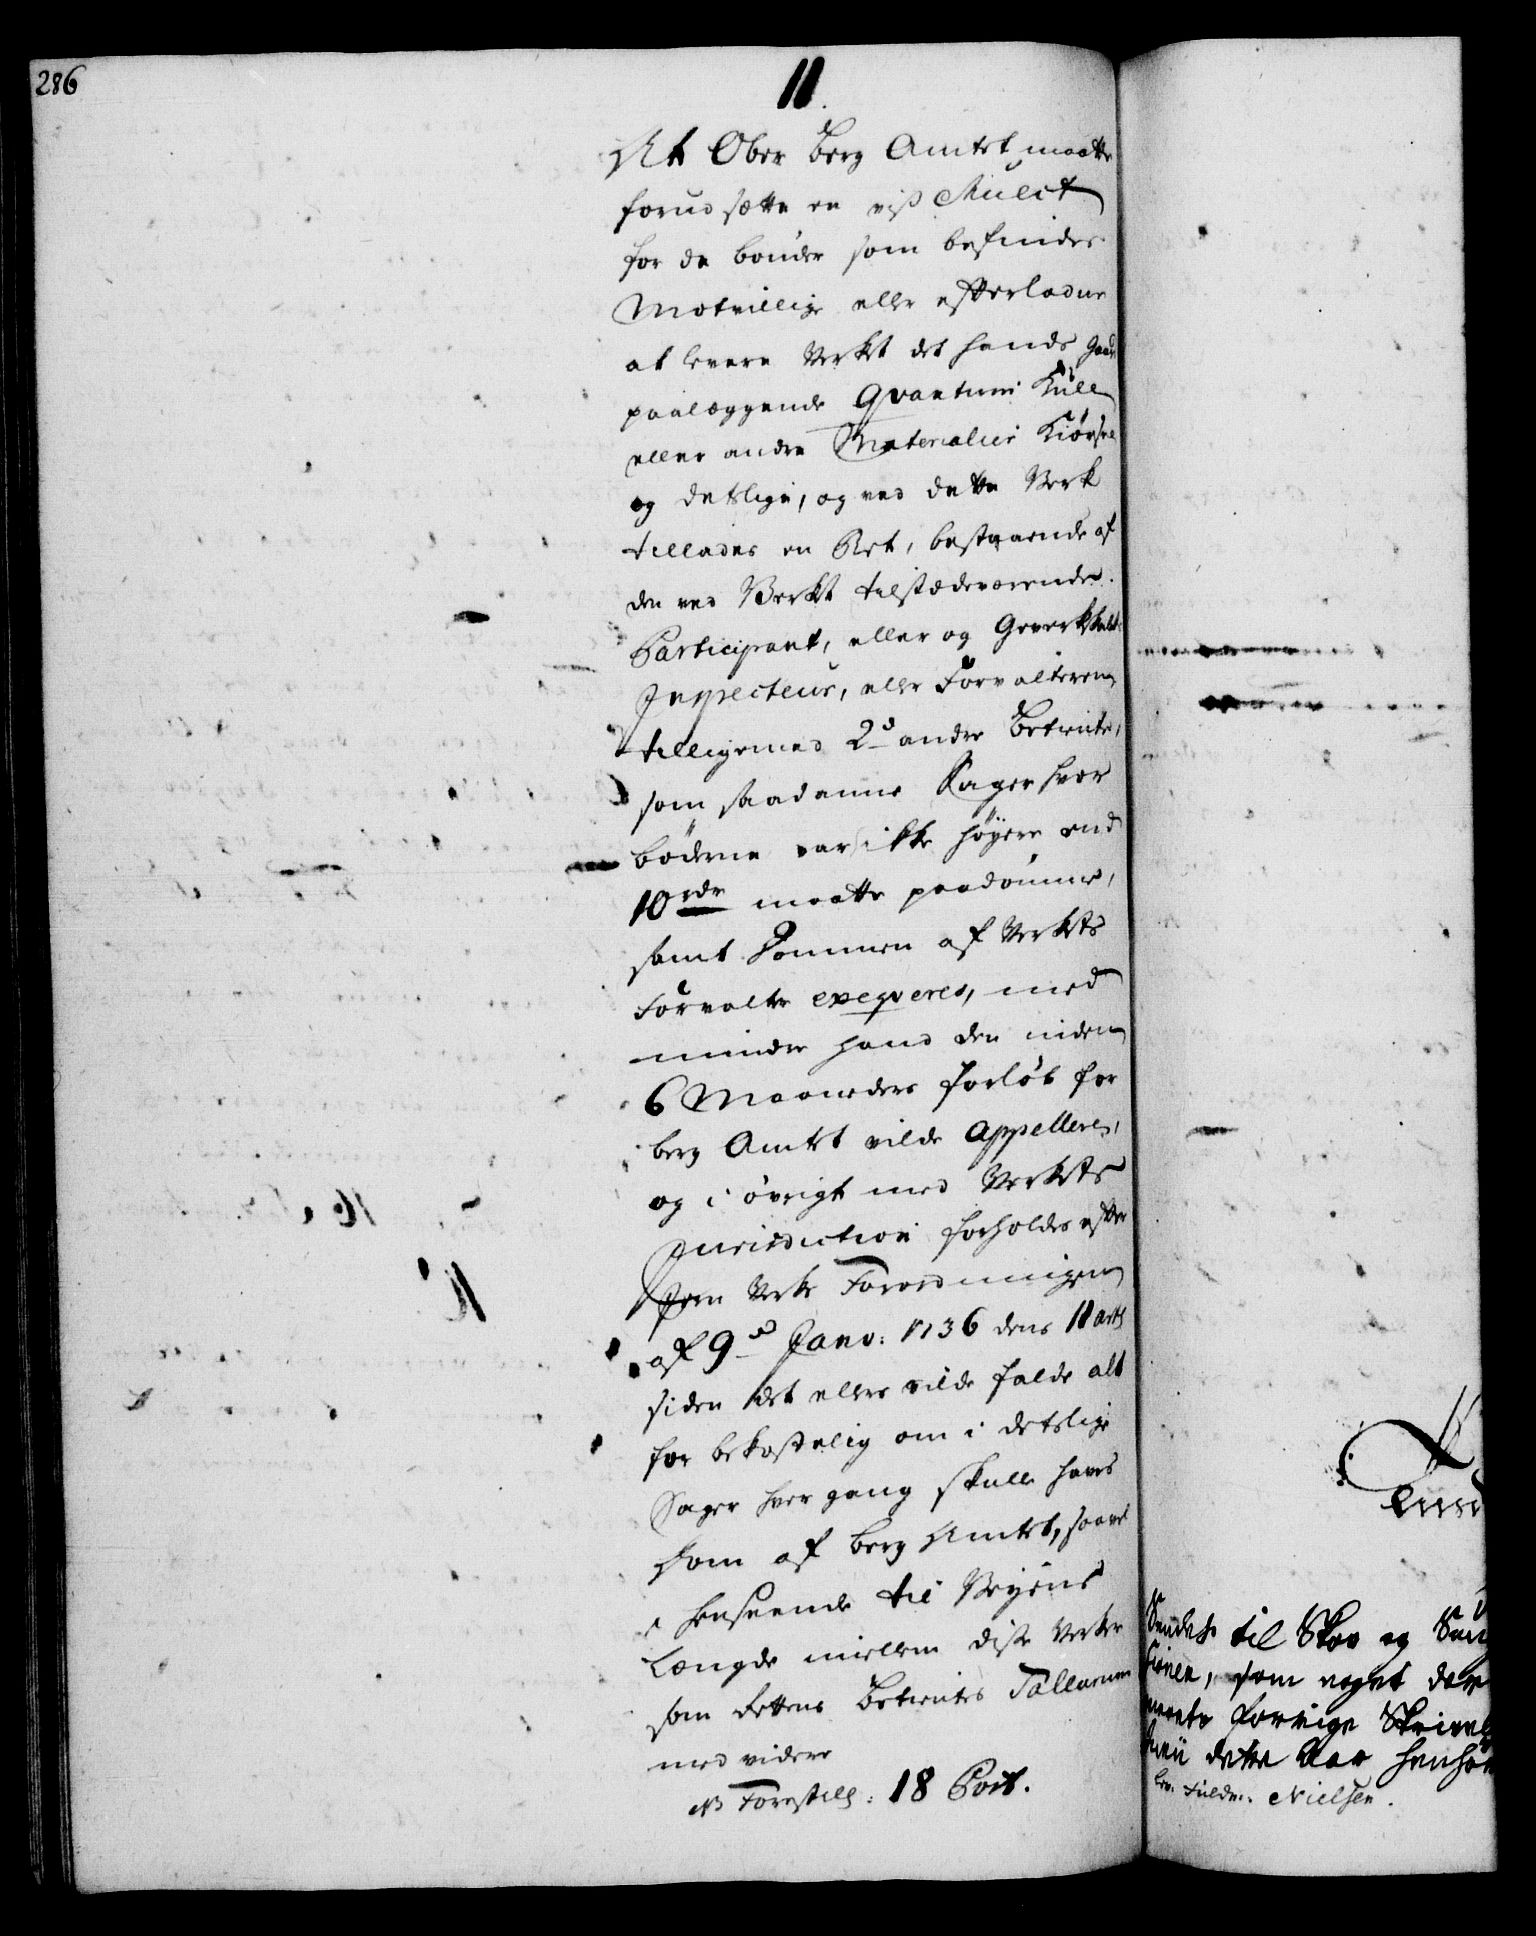 286
11.
At Ober Berg Amtet maatte
forud sætte en viss Mulct
for de bönder som befindes
Motvillige eller efterladne
at levere Verket det hands Gaard
paalæggende Qvantum Kull
eller andre Materialier Kiörsel
og detslige, og ved dette Verk
tillades en Ret, bestaaende af
den ved Verket tilstædeværende
Participant, eller og Gewerkskabets
Inspecteur, eller Forvalteren
tilligemed 2de andre Betiente,
som saadanne Sager hvor
böderne var ikke höyere end
10 rdr maatte paadömme,
samt Dommen af Verkets
Forvalter exeqveres, med
mindre hand den inden
6 Maaneders Forlöb for
berg Amtet vilde Appellere,
og i övrigt med Verkets
Jurisdiction forholdes efter
Jern Verks Forordningen
af 9de Janv: 1736 dens 11 art:
siden det ellers vilde falde alt
for bekostelig om i detslige
Sager hver gang skulle haves
Dom af Berg Amtet, saavel
i henseende til Veyens
Længde mellem disse Verker
som Rettens Betientes
med videre
NB Forestill: 18 Post.
Sendes til Skov og
som noget
forrige
dette Aar
Nielsen.